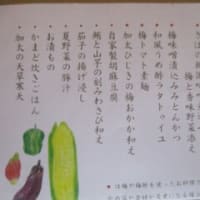 梅と香味野菜添え
とんかつ
和風うめ酢ラタトゥイユ
梅トマト素麺
加太ひじきの梅おかか和え
自家製胡麻豆腐
と山芋の刻みわさび和え
茄子の揚げ浸し
夏野菜の豚汁
お漬もの
かまど炊きごはん
加太の天草寒天
は梅や梅酢を使ったお料理